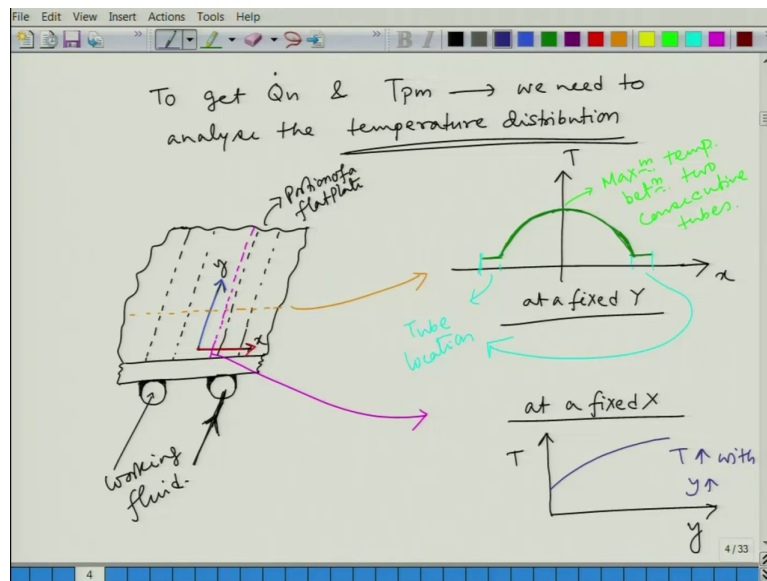 File Edit View Insert Actions Tools Help
To get Q̇n & Tpm → we need to
analyse the temperature distribution
Portion of a
flat plate
y
x
working
fluid.
T
Max^m temp.
bet^n two
consecutive
tubes.
x
at a fixed Y
Tube
location
at a fixed X
T
T ↑ with
y ↑
y
4/33
4